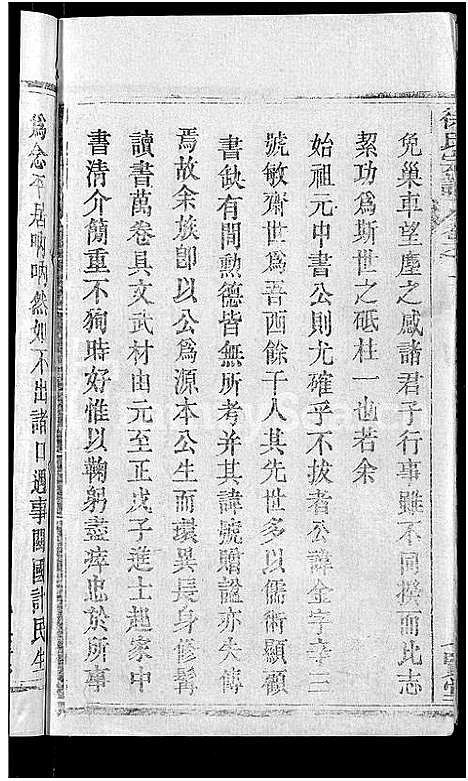 徐氏宗譜
免巢車望塵之感諸君子行事雖不同揆而比志
絜功爲斯世之砥柱一也若余
始祖元中書公則尤確乎不拔者公諱金字幸三
號敏齋世爲吾西餘干人其先世多以儒術顯顧
書缺有間勲德皆無所考并其諱號贈謚亦失傳
焉故余族卽以公爲源本公生而瓌異長身修髯
讀書萬卷具文武材由元至正戊子進士起家中
書清介簡重不狥時好惟以鞠躬盡瘁也於所事
爲念平居吶吶然如不出諸口遇事關國計民生